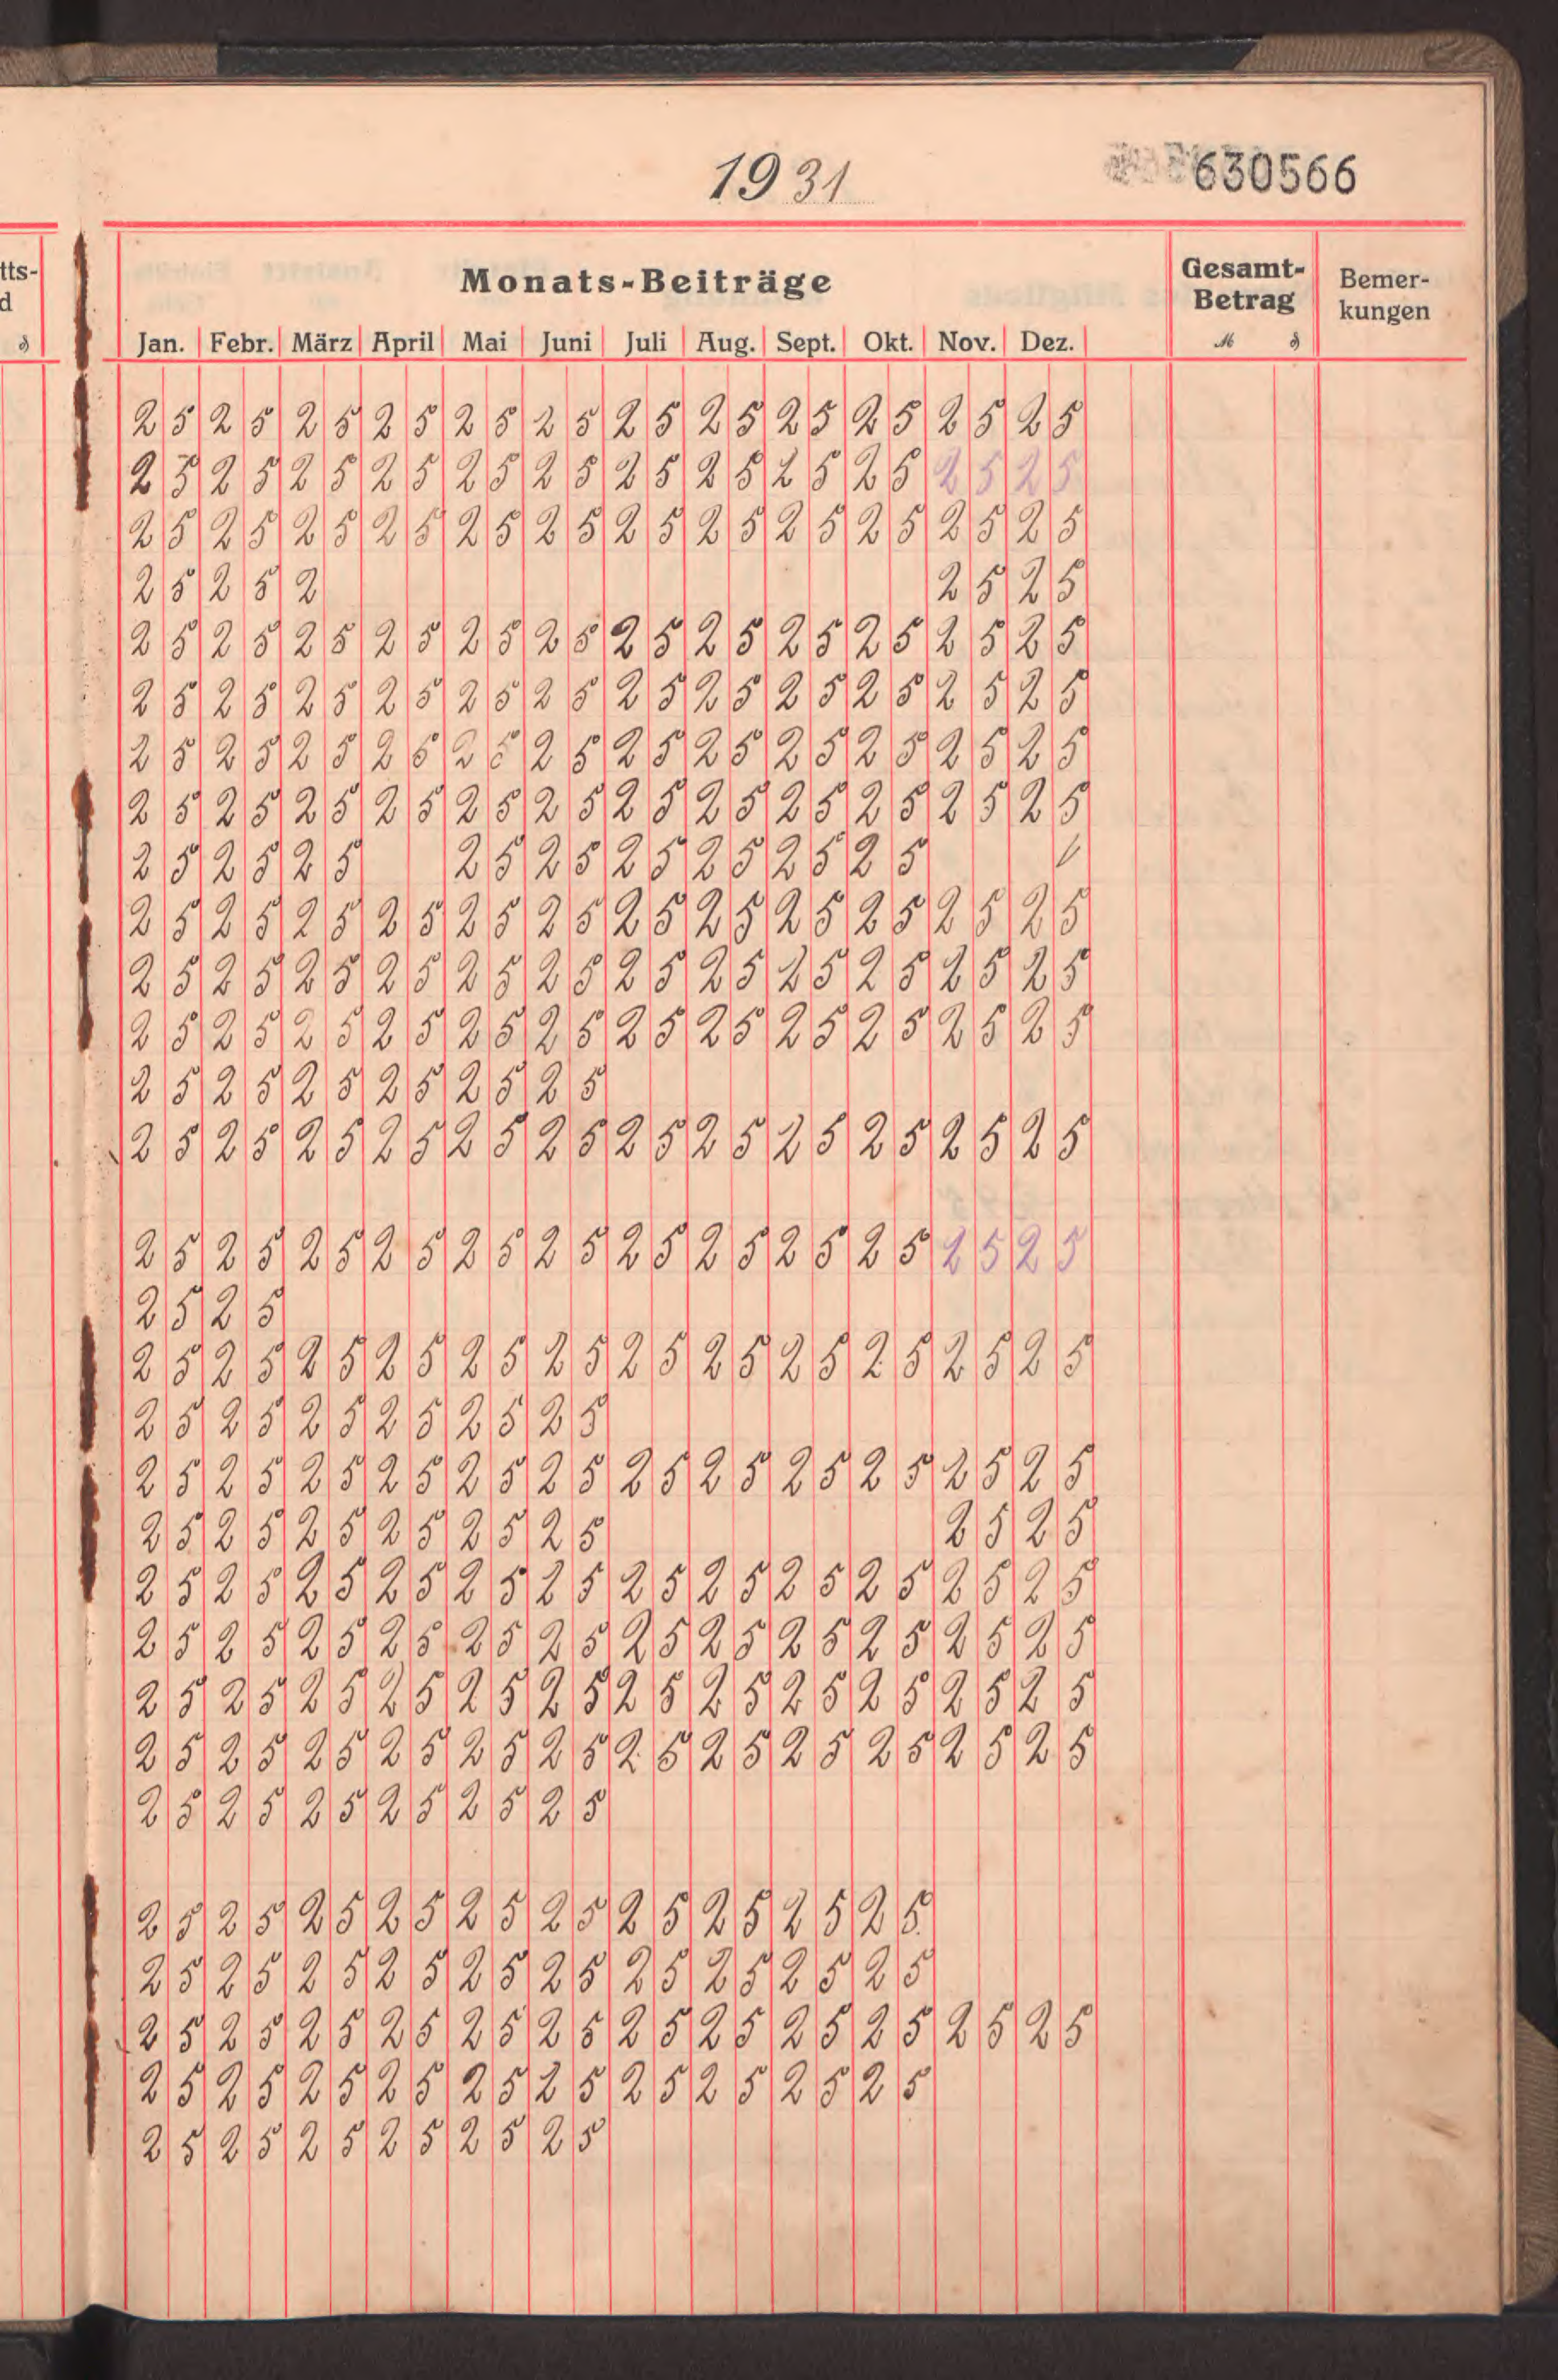 1931
630566
tts-
d
₰
Monats-Beiträge
Gesamt-
Betrag
ℳ ₰
Bemer-
kungen
Jan. Febr. März April Mai Juni Juli Aug. Sept. Okt. Nov. Dez.
25 25 25 25 25 25 25 25 25 25 25 25
25 25 25 25 25 25 25 25 25 25 25 25
25 25 25 25 25 25 25 25 25 25 25 25
25 25 2 25 25
25 25 25 25 25 25 25 25 25 25 25 25
25 25 25 25 25 25 25 25 25 25 25 25
25 25 25 25 25 25 25 25 25 25 25 25
25 25 25 25 25 25 25 25 25 25 25 25
25 25 25 25 25 25 25 25 25
25 25 25 25 25 25 25 25 25 25 25 25
25 25 25 25 25 25 25 25 25 25 25 25
25 25 25 25 25 25 25 25 25 25 25 25
25 25 25 25 25 25
25 25 25 25 25 25 25 25 25 25 25 25
25 25 25 25 25 25 25 25 25 25 25 25
25 25
25 25 25 25 25 25 25 25 25 25 25 25
25 25 25 25 25 25
25 25 25 25 25 25 25 25 25 25 25 25
25 25 25 25 25 25 25 25
25 25 25 25 25 25 25 25 25 25 25 25
25 25 25 25 25 25 25 25 25 25 25 25
25 25 25 25 25 25 25 25 25 25 25 25
25 25 25 25 25 25 25 25 25 25 25 25
25 25 25 25 25 25
25 25 25 25 25 25 25 25 25 25
25 25 25 25 25 25 25 25 25 25
25 25 25 25 25 25 25 25 25 25 25 25
25 25 25 25 25 25 25 25 25 25
25 25 25 25 25 25